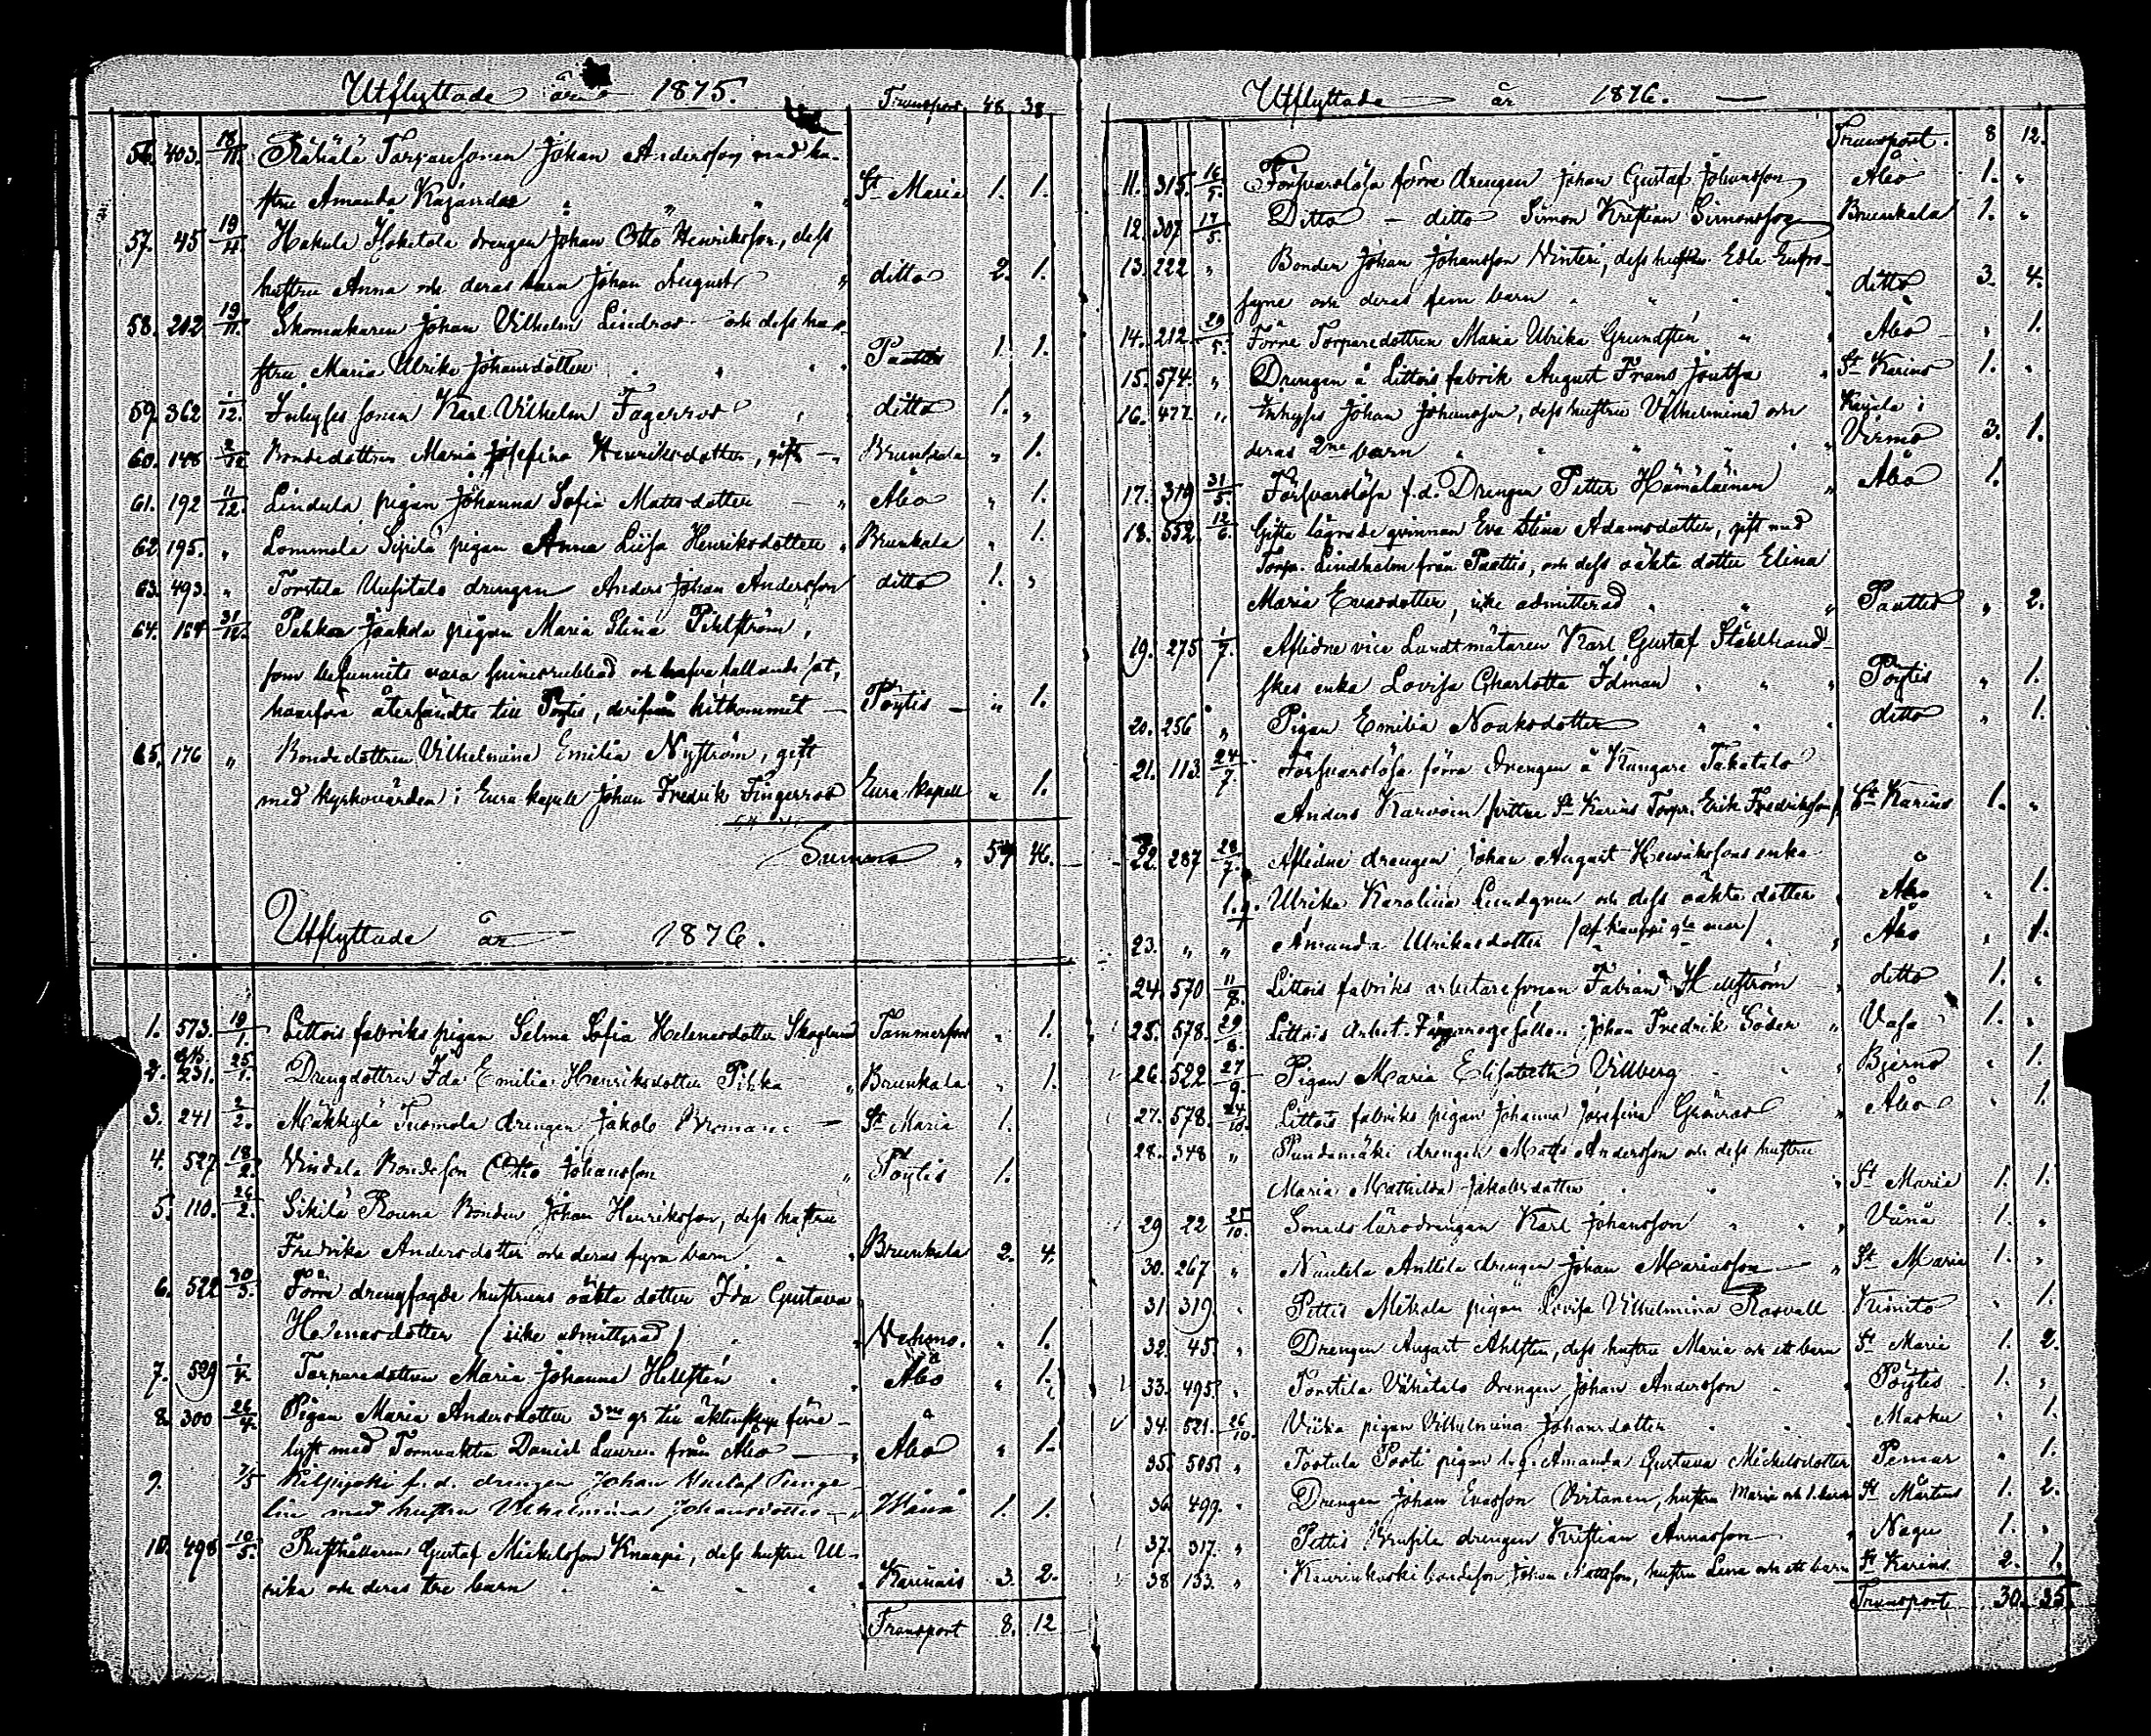 Utflyttade år 1875.
Transport. 48. 38
56. 403. 18/11. Rähälä Torparesonen Johan Andersson med hu-
stru Amanda Kajander " " " St Maria 1. 1.
57. 45 19/11. Hakula drengen Johan Otto Henriksson, dess
hustru Anna och deras barn Johan August " ditto 2. 1.
58. 212 19/11. Skomakaren Johan Vilhelm Lindros och dess hu-
stru Maria Ulrika Johansdotter Paattis 1. 1.
59. 362 1/12. Inhyses sonen Karl Vilhelm Fagerros ditto 1. "
60. 148 2/12 Bondedottren Maria Josefina Henriksdotter, gift - Brunkala " 1.
61. 192 11/12. Lindula pigan Johanna Sofia Mattsdotter - " Åbo " 1.
62. 195. " Lommola Sipilä pigan Anna Lisa Henriksdotter " Brunkala " 1.
63. 493. " Torstila Uusitalo drengen Anders Johan Andersson ditto 1. "
64. 164 31/12. Pehkon Jaakola pigan Maria Stina Pihlström,
som befunnits vara sinnesrubbad och hafva fallandesot,
hvarföre återsändts till Pöytis, derifrån hitkommit - Pöytis - " 1.
65. 176 " Bondedottren Vilhelmina Emilia Nyström, gift
med kyrkovärden i Eura kapell Johan Fredrik Fingerroos Eura kapell " 1.
Summa " 57 46.
Utflyttade år 1876.
1. 573. 19/1. Littois fabriks pigan Selma Sofia Helenesdotter Skoglund Tammerfors " 1.
2. 231. 25/1. Drengdottren Ida Emilia Henriksdotter Pihka " Brunkala " 1.
3. 241 2/2. Mäkkylä Tuomola drengen Jakob Broman - St Maria 1.
4. 527 18/2. Vindala Bondeson Otto Johansson " Pöytis 1.
5. 110. 26/2. Sikilä Rouna Bonden Johan Henriksson, dess hustru
Fredrika Andersdotter och deras fyra barn " Brunkala 2. 4.
6. 522 30/3. Förre drengfogde hustruns oäkta dotter Ida Gustava
Helenasdotter (icke admitterad) " Vehmo. " 1.
7. 529 1/4. Torparedottren Maria Johanna Hellstén " Åbo " 1.
8. 300 26/4. Pigan Maria Andersdotter 3ne gr till äktenskap före-
lyst med Tornvakten Daniel Lauren från Åbo - " Åbo " 1.
9. 7/5 f. d. drengen Johan Gustaf Tenge-
lin med hustru Vilhelmina Johansdotter - " Wånå 1. 1.
10. 498 10/5. Rusthållaren Gustaf Mickelsson Knaapi, dess hustru Ul-
rika och deras tre barn " " " Karinais 3. 2.
Transport 8. 12
Utflyttade år 1876.
Transport. 8 12.
11. 315. 16/5. Försvarslösa förre drengen Johan Gustaf Johansson Åbo 1. "
12. 307 17/5. Ditto - ditto Simon Kristian Simonsson Brunkala 1. "
13. 222 " Bonden Johan Johansson Vinteri, dess hustru Edla Eufro-
syne och deras fem barn " " " ditto 3. 4.
14. 212. 29/5. Förre Torparedottren Maria Ulrika Grundstén " Åbo " 1.
15. 574. " Drengen å Littois fabrik August Frans Joutsa " St Karins 1. "
16. 477. " Inhyses Johan Johansson, dess hustru Vilhelmina och Karjala i
deras 2ne barn " " " Virmo 3. 1.
17. 319 31/5. Försvarslösa f.d. Drengen Petter Hämäläinen " Åbo 1.
18. 552. 12/6. Gifta lägrade qvinnan Eva Stina Adamsdotter, gift med
Torp. Lindholm från Paattis, och dess oäkta dotter Elina
Maria Evasdotter, icke admitterad " " Paattis " 2.
19. 275 1/7. Aflidne vice Landtmätaren Karl Gustaf Stålhand-
skes enka Lovisa Charlotta Idman " " " Pöytis " 1.
20. 256 " Pigan Emilia Noaksdotter " " ditto " 1.
21. 113. 24/7. Försvarslösa förra drengen å Kungare Takatalo
Anders Karvoin St Karins Torpr. Erik Fredriksson St Karins 1. "
22. 287 28/7. Aflidne drengen Johan August Henrikssons enka
l.q. Ulrika Karolina Lundgren och dess oäkta dotter " Åbo " 1.
23. " " Amanda Ulrikasdotter Åbo " 1.
24. 570 11/8. Littois fabriks arbetaresonen Fabian Hellström " ditto 1. "
25. 578. 29/8. Littois Arbet. Färgaregesällen Johan Fredrik Söder " Vasa 1. "
26. 522 27/9 Pigan Maria Elisabeth Villberg " Bjerno " 1.
27. 578. 24/10. Littois fabriks pigan Johanna Josefina Grönroos " Åbo " 1.
28. 348 " Pundamäki drengen Matts Andersson och dess hustru
Maria Mathilda Jakobsdotter " " St Maria 1. 1.
29 22 25/10. Smeds lärodrengen Karl Johansson " " Vånå 1. "
30. 267 " Nautela Anttila drengen Johan Mariasson - " St Maria 1. "
31 319 " Pettis Mikola pigan Lovisa Vilhelmina Rosvall Kimito " 1.
32. 45. " Drengen August Ahlsten, dess hustru Maria och ett barn St Maria 1. 2.
33. 495. " Torstila Vähätalo drengen Johan Andersson " Pöytis 1. "
34. 521. 26/10. Viika pigan Vilhelmina Johansdotter " Masku " 1.
35. 505. " Tortula Posti pigan l.q. Amanda Gustava Mickelsdotter Pemar " 1.
36. 499. " Drengen Johan Evasson Virtanen, hustru Maria och 1. barn St Mårtens 1. 2.
37. 317. " Pettis Krusila drengen Kristian Annasson " Nagu 1. "
38 153. " Kaurinkoski bondeson Johan Mattsson, hustru Lena och ett barn St Karins 2. 1.
Transport 30. 35.